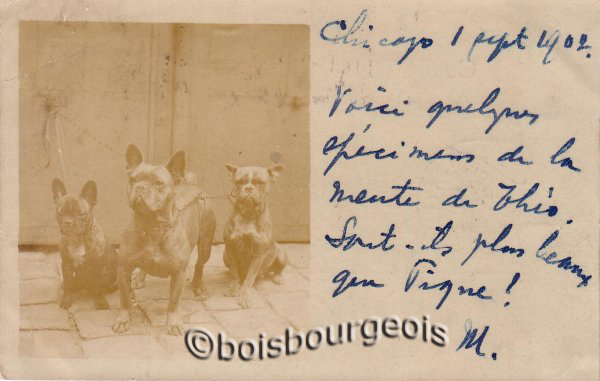 Chicago 1 sept 1902.
Voici quelques
spécimens de la
meute de Théo.
Sont-ils plus beaux
que Tigne!
M.
©boisbourgeois